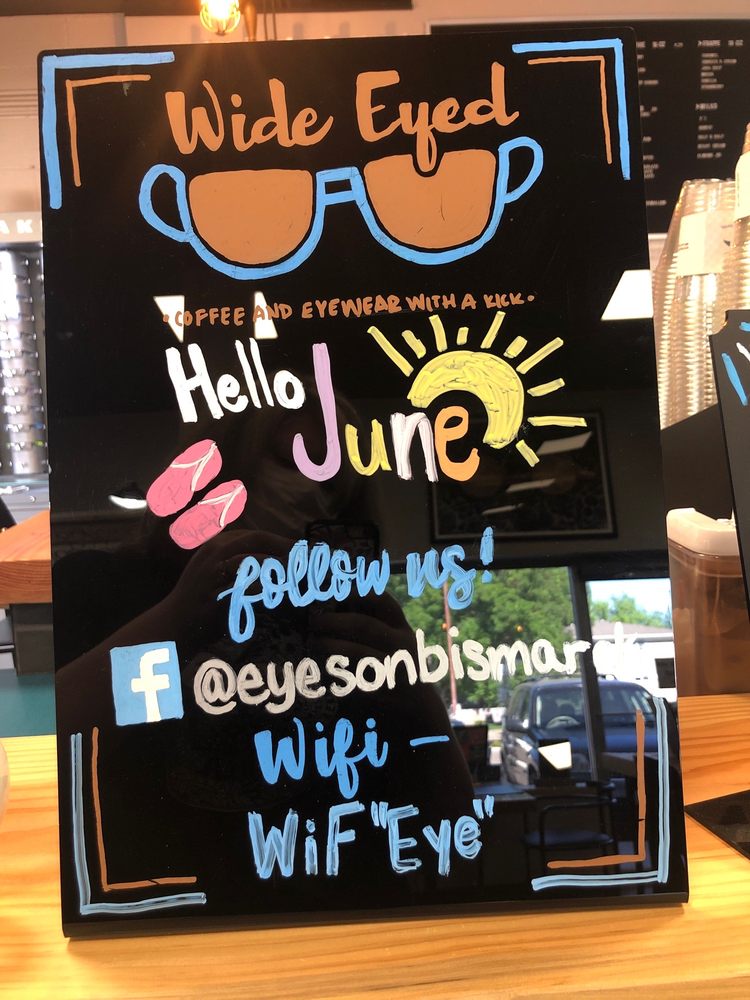 Wide Eyed
• COFFEE AND EYEWEAR WITH A KICK •
Hello June
follow us!
f @eyesonbismarck
Wifi -
WiF "Eye"